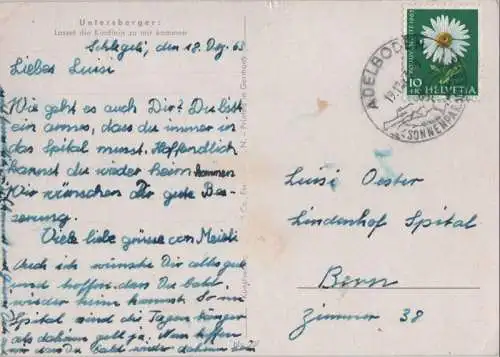 Untersberger:
Lasset die Kindlein zu mir kommen
Schlegeli, den 18. Dez. 63
Liebes Luisi
Wie geht es auch Dir? Du bist
ein armes, dass du immer in
das Spital musst. Hoffendlich
kannst du wieder heim kommen
Wir wünschen Dir gute Bes-
serung.
Viele liebe grüsse von Meieli
Auch ich wünsche Dir alles gute
und hoffen dass Du bald
wieder heim kannst. So im
Spital sind die Tagen länger
als daheim gelt ja. Nun hoffen
wir dass Du bald wieder daheim
Printed in Germany
ADELBODEN
SONNENPARA
10
HELVETIA
Luisi Oester
Lindenhof Spital
Bern
Zimmer 38